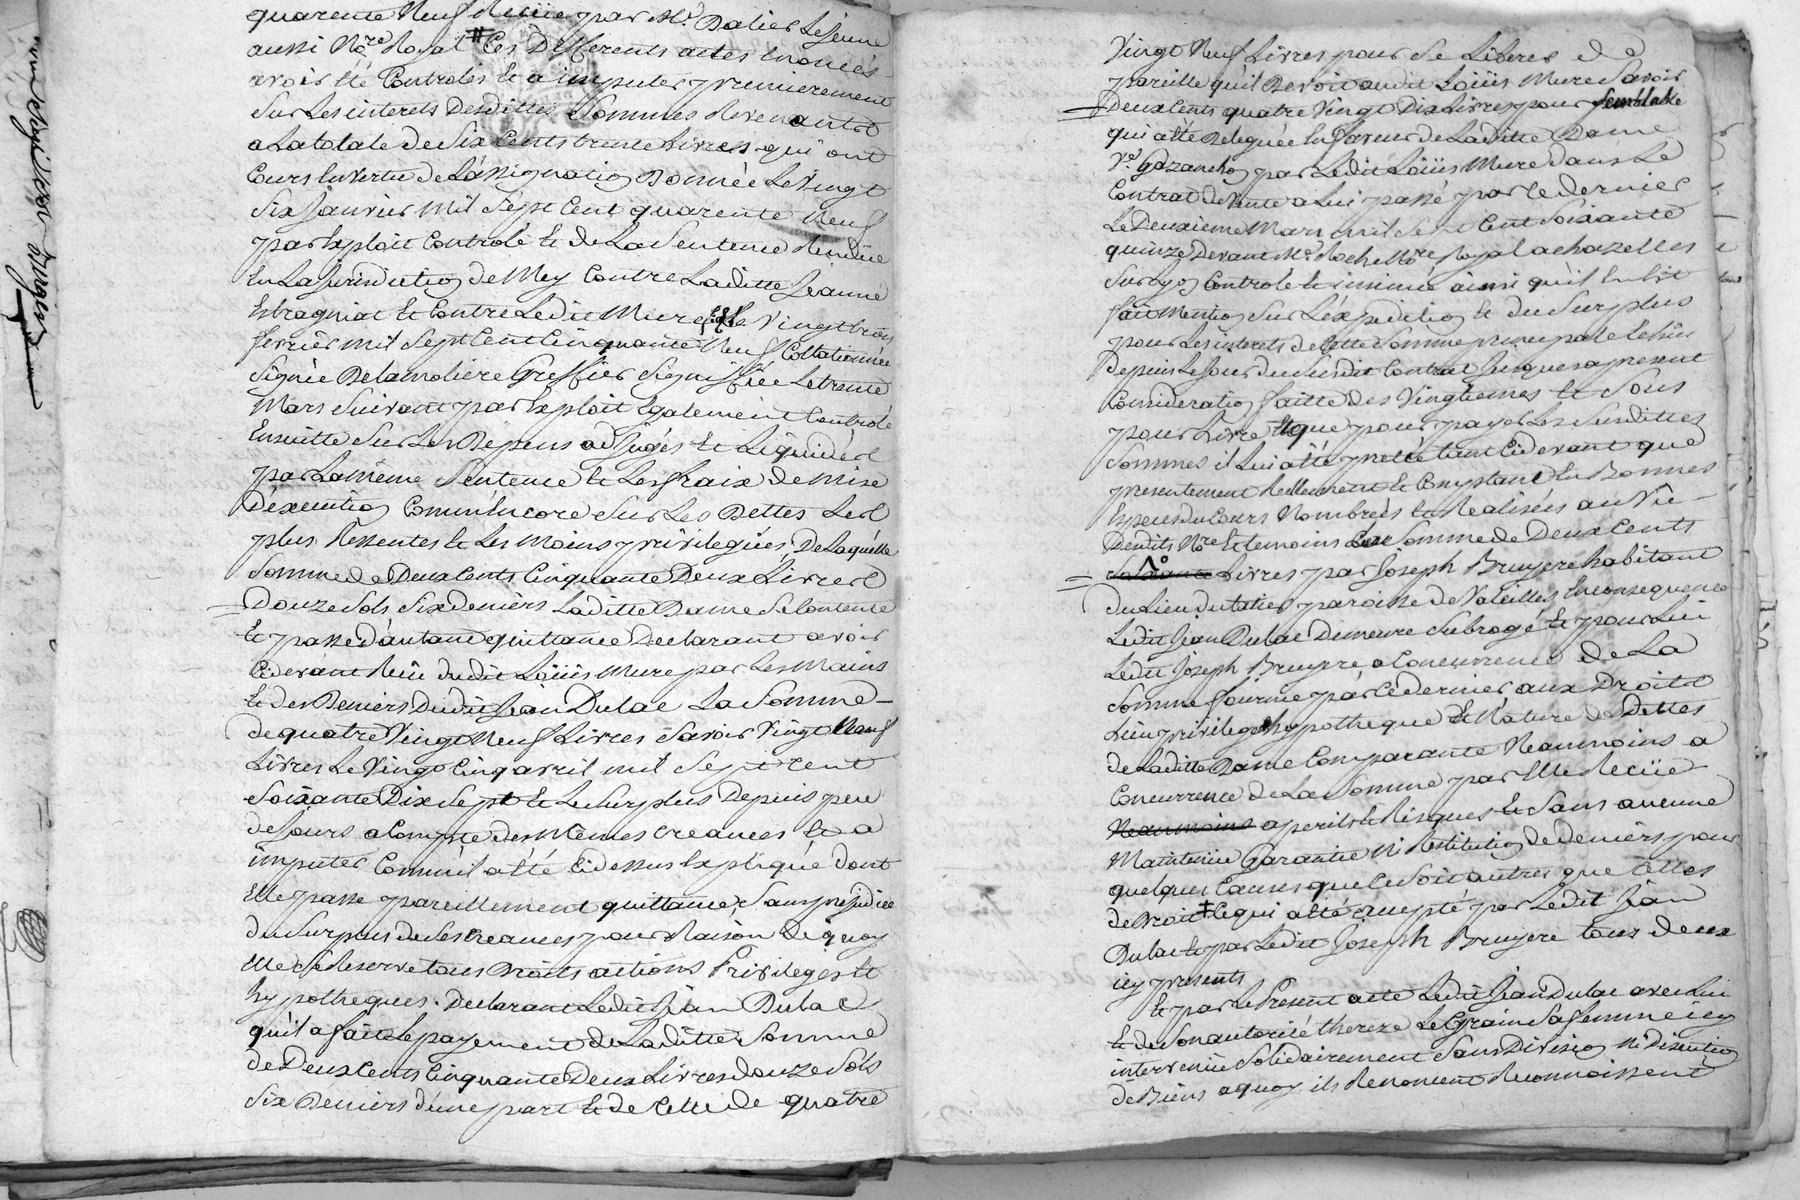 quarente Neuf Recüe par Me. Dalier Lejeune
aussi Nore. Royal # Ces Differents actes Enoncés
avoir été Controlés Et a imputer premierement
Sur Les interets Desdittes Sommes Revenants
a La totale de Six Cents trente Livres qui ont
Cours En vertu de L'assignation Donnée Le Vingt
Six Janvier Mil Sept Cent quarente Neuf
par Exploit Controlé Et de La Sentence Rendüe
En La Jurisdiction de Mey Contre Laditte Jeanne
Estragniat Et Contre Ledit Mure Le Vingt trois
fevrier mil Sept Cent Cinquante Neuf Collationnée
Signée Delamoliere Greffier Signiffiée Letrente
Mars Suivant par Exploit Egalement Controlé
Ensuitte Sur Les Depens adjugés Et Liquidés
par La même Sentence Et Les fraix de mise
D'execution Comm'Encore Sur Les Dettes Les
plus Ressentes Et Les Moins privilegiées, De Laquelle
Somme de Deux Cents Cinquante Deux Livres
Douze Sols Six deniers Laditte Dame Se Contente
Et passe d'autant quittance Declarant avoir
Cidevant Reçû dudit Loüis Mure par Les Mains
Et des Deniers Dudit Jean Dulac La Somme
de quatre Vingt Neuf Livres Savoir Vingt Neuf
Livres Le Vingt Cinq avril mil Sept Cent
Soixante Dix Sept Et Le Surplus Depuis peu
de Jours a Compte des Mêmes creances Et a
imputer Comm'il a été Cidessus Expliqué dont
Elle passe pareillement quittance Sans prejudice
du Surplus de Ses Creances pour Raison De quoy
Elle Se Reserve tous Droits actions Privileges Et
hypotheques. Declarant Ledit Jean Dulac
qu'il a fait Le payement de Laditte Somme
de Deux Cents Cinquante Deux Livres douze Sols
Six Deniers d'une part Et de Celle de quatre
Vingt Neuf Livres pour Se Liberer de
pareille qu'il Devoit audit Loüis Mure Savoir
Deux Cents quatre Vingt Dix Livres pour Semblable
qui a été Deleguée En faveur de Laditte Dame
Ve. Gazanchon par Ledit Loüis Mure dans Le
Contrat de Vente a Lui passé par ce dernier
Le Deuxieme Mars mil Sept Cent Soixante
quinze Devant Me. Roche Nore. Royal a chazelles
Sur Lyon Controlé Et insinué ainsi qu'il En Est
fait Mention Sur L'expedition Et du Surplus
pour Les interets de Cette Somme principale Echus
Depuis Le Jour du Susdit Contrat Jusques apresent
Consideration faitte des Vingtiemes Et Sous
pour Livre, Et que pour payer Les Susdittes
Sommes il Lui a été preté tant Cidevant que
presentement Reellement Et Comptant En Bonnes
Especes du Cours Nombrées Et Realisées au Vû
Desdits Nore. Et temoins La Somme de Deux Cents
Soixante Livres par Joseph Bruyere habitant
du Lieu du paroisse de Valeilles, En consequence
Ledit Jean Dulac Demeure Subrogé Et pour Lui
Ledit Joseph Bruyere a Concurrence de La
Somme fournie par ce dernier aux Droits
Lieu privilege hypotheque Et Nature de Dettes
de Laditte Dame Comparante Neanmoins a
Concurrence de La Somme par Elle Recüe
Neanmoins a perils Et Risques Et Sans aucune
Maintenüe Garantie Ni Restitution de deniers pour
quelques Causes que Ce Soit autres que Celles
de Droit ‡ Ce qui a été accepté par Ledit Jean
Dulac Et par Ledit Joseph Bruyere tous deux
icy presents
Et par Le Present acte Ledit Jean Dulac avec Lui
Et de Son autorité thereze Le Grain Sa femme icy
intervenüe Solidairement Sans Division Ni Discution
de Biens a quoy ils Renoncent Reconnoissent